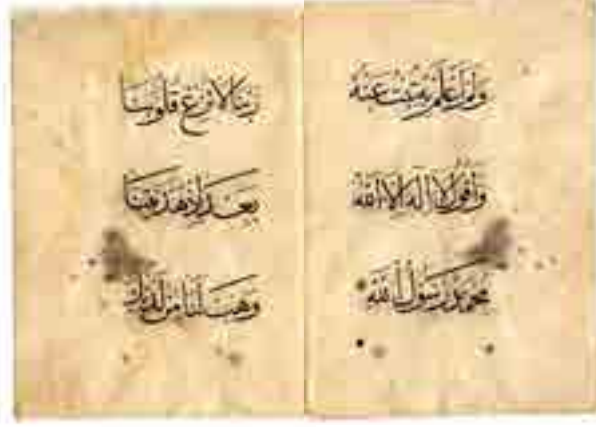 ولم اعلم به تبت عنه
واقول لا اله الا الله
محمد رسول الله
ربنا لا تزغ قلوبنا
بعد اذ هديتنا
وهب لنا من لدنك